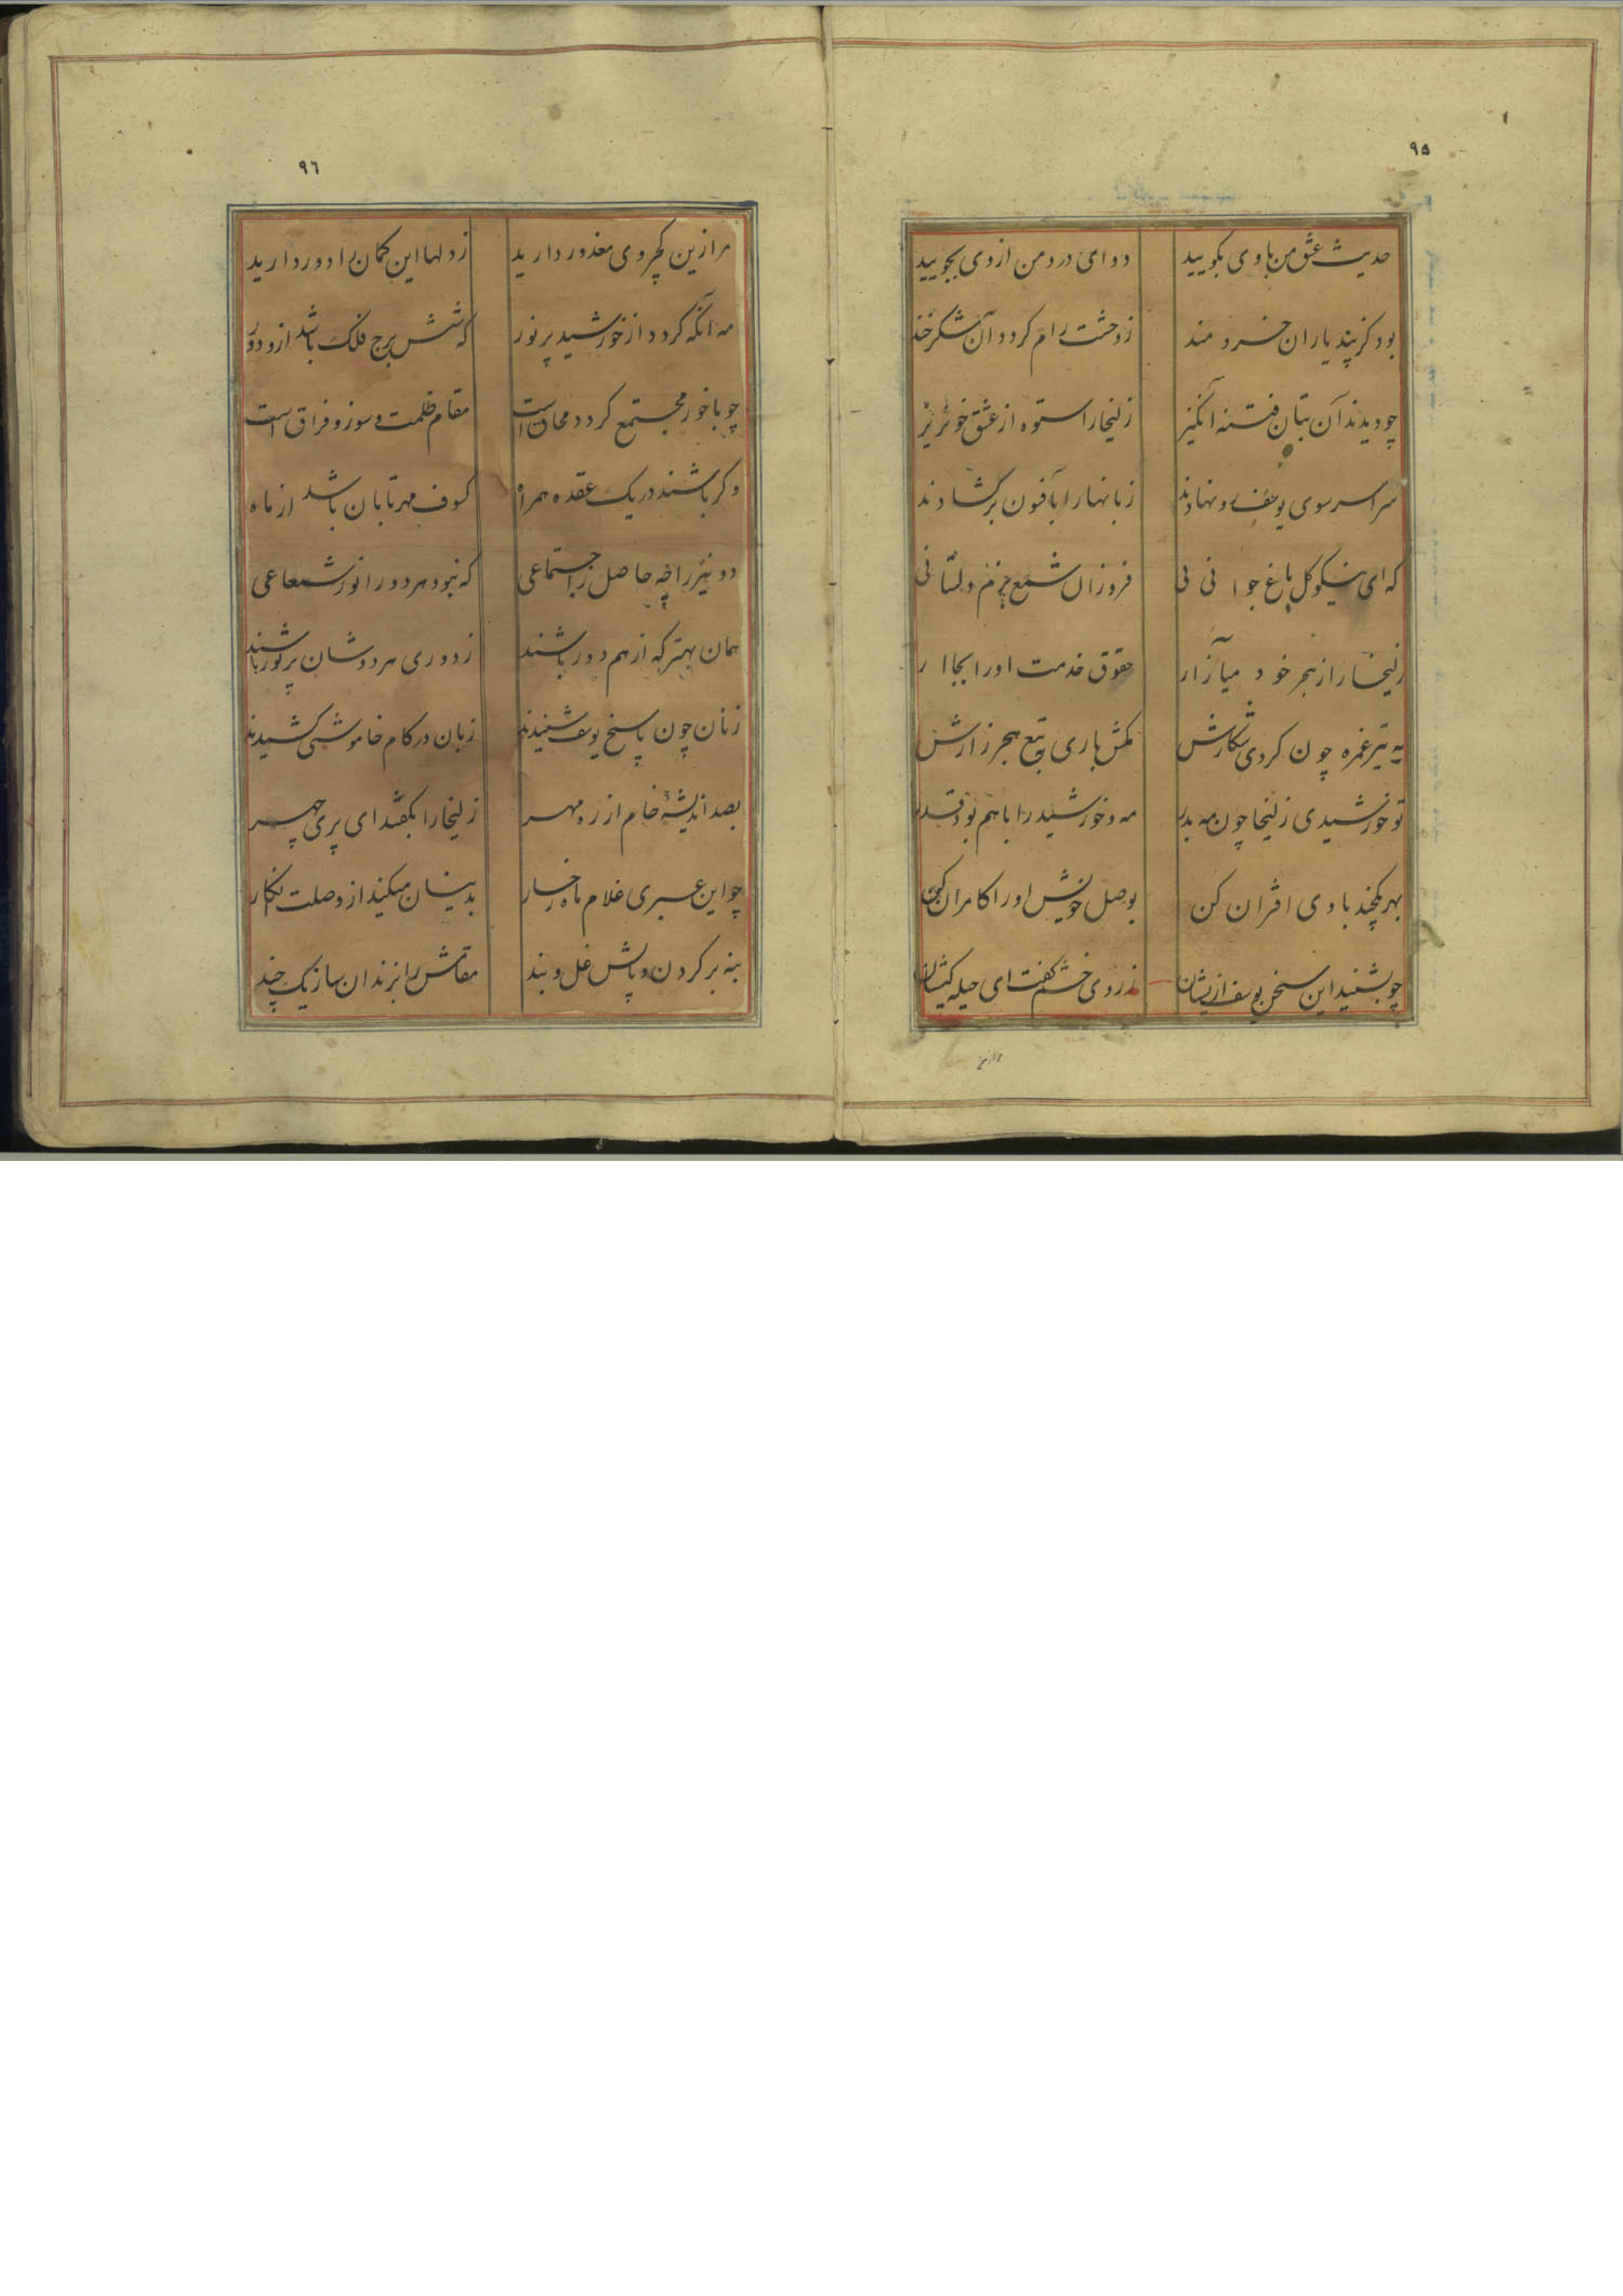 ۹۵
حدیث عشق من باوی بکویید دوای درد من ازوی بجویید
بود کز پند یاران خردمند ز وحشت رام کردد آن شکرخند
چو دیدند آن بتان فتنه انکیز زلیخارا ستوه از عشق خونریز
سراسر سوی یوسف رو نهادند زبانهارا بآفسون برکشادند
که ای نیکو کل باغ جوانی فروزان شمع بزم دلستانی
زلیخارا ز هجر خود میآزار حقوق خدمت اورا بجا ار
به تیر غمزه چون کردی شکارش مکش باری بتیغ هجر زارش
تو خورشیدی زلیخا چون مه بدر مه و خورشیدرا باهم بود قدر
بهر یکچند باوی اقتران کن بوصل خویش اورا کامران کن
چو بشنید این سخن یوسف ازیشان ز روی خشم کفت ای حیله کیشان
۹٦
مرا زین کجروی معذور دارید ز دلها این کمان را دور دارید
مه آنکه کردد از خورشید پرنور که شش برج فلک باشد ازو دور
چو باخور مجتمع کردد محاق است مقام ظلمت و سوز و فراق است
وکر باشند در یک عقده همراه کسوف مهر تابان باشد از ماه
دو نیررا چه حاصل ز اجتماعی که نبود هر دورا نور شعاعی
همان بهتر که از هم دور باشند ز دوری هر دوشان پر نور باشند
زنان چون پاسخ یوسف شنیدند زبان در کام خاموشی کشیدند
بصد اندیشهٔ خام از ره مهر زلیخارا بکفتند ای پری چهر
چو این عبری غلام ماه رخسار بدینسان میکند از وصلت انکار
بنه بر کردن و پایش غل و بند مقامش را بزندان ساز یک چند